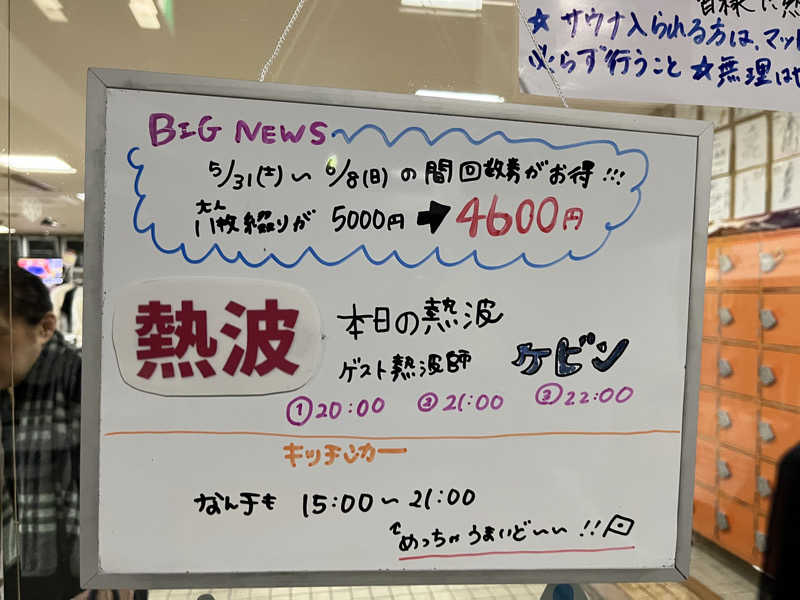 皆様に熱
☆サウナ入られる方は、マット
必らず行うこと☆無理は
BIG NEWS
5/31(土)〜6/8(日)の間回数券がお得!!!
大人
11枚綴りが 5000円➡4600円
熱波
本日の熱波
ゲスト熱波師 ケビン
①20:00 ②21:00 ③22:00
キッチンカー
なん手も 15:00〜21:00
めっちゃうまいどーい!!